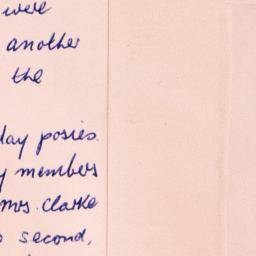 were
another
the
day posies.
members
mrs. Clarke
second,